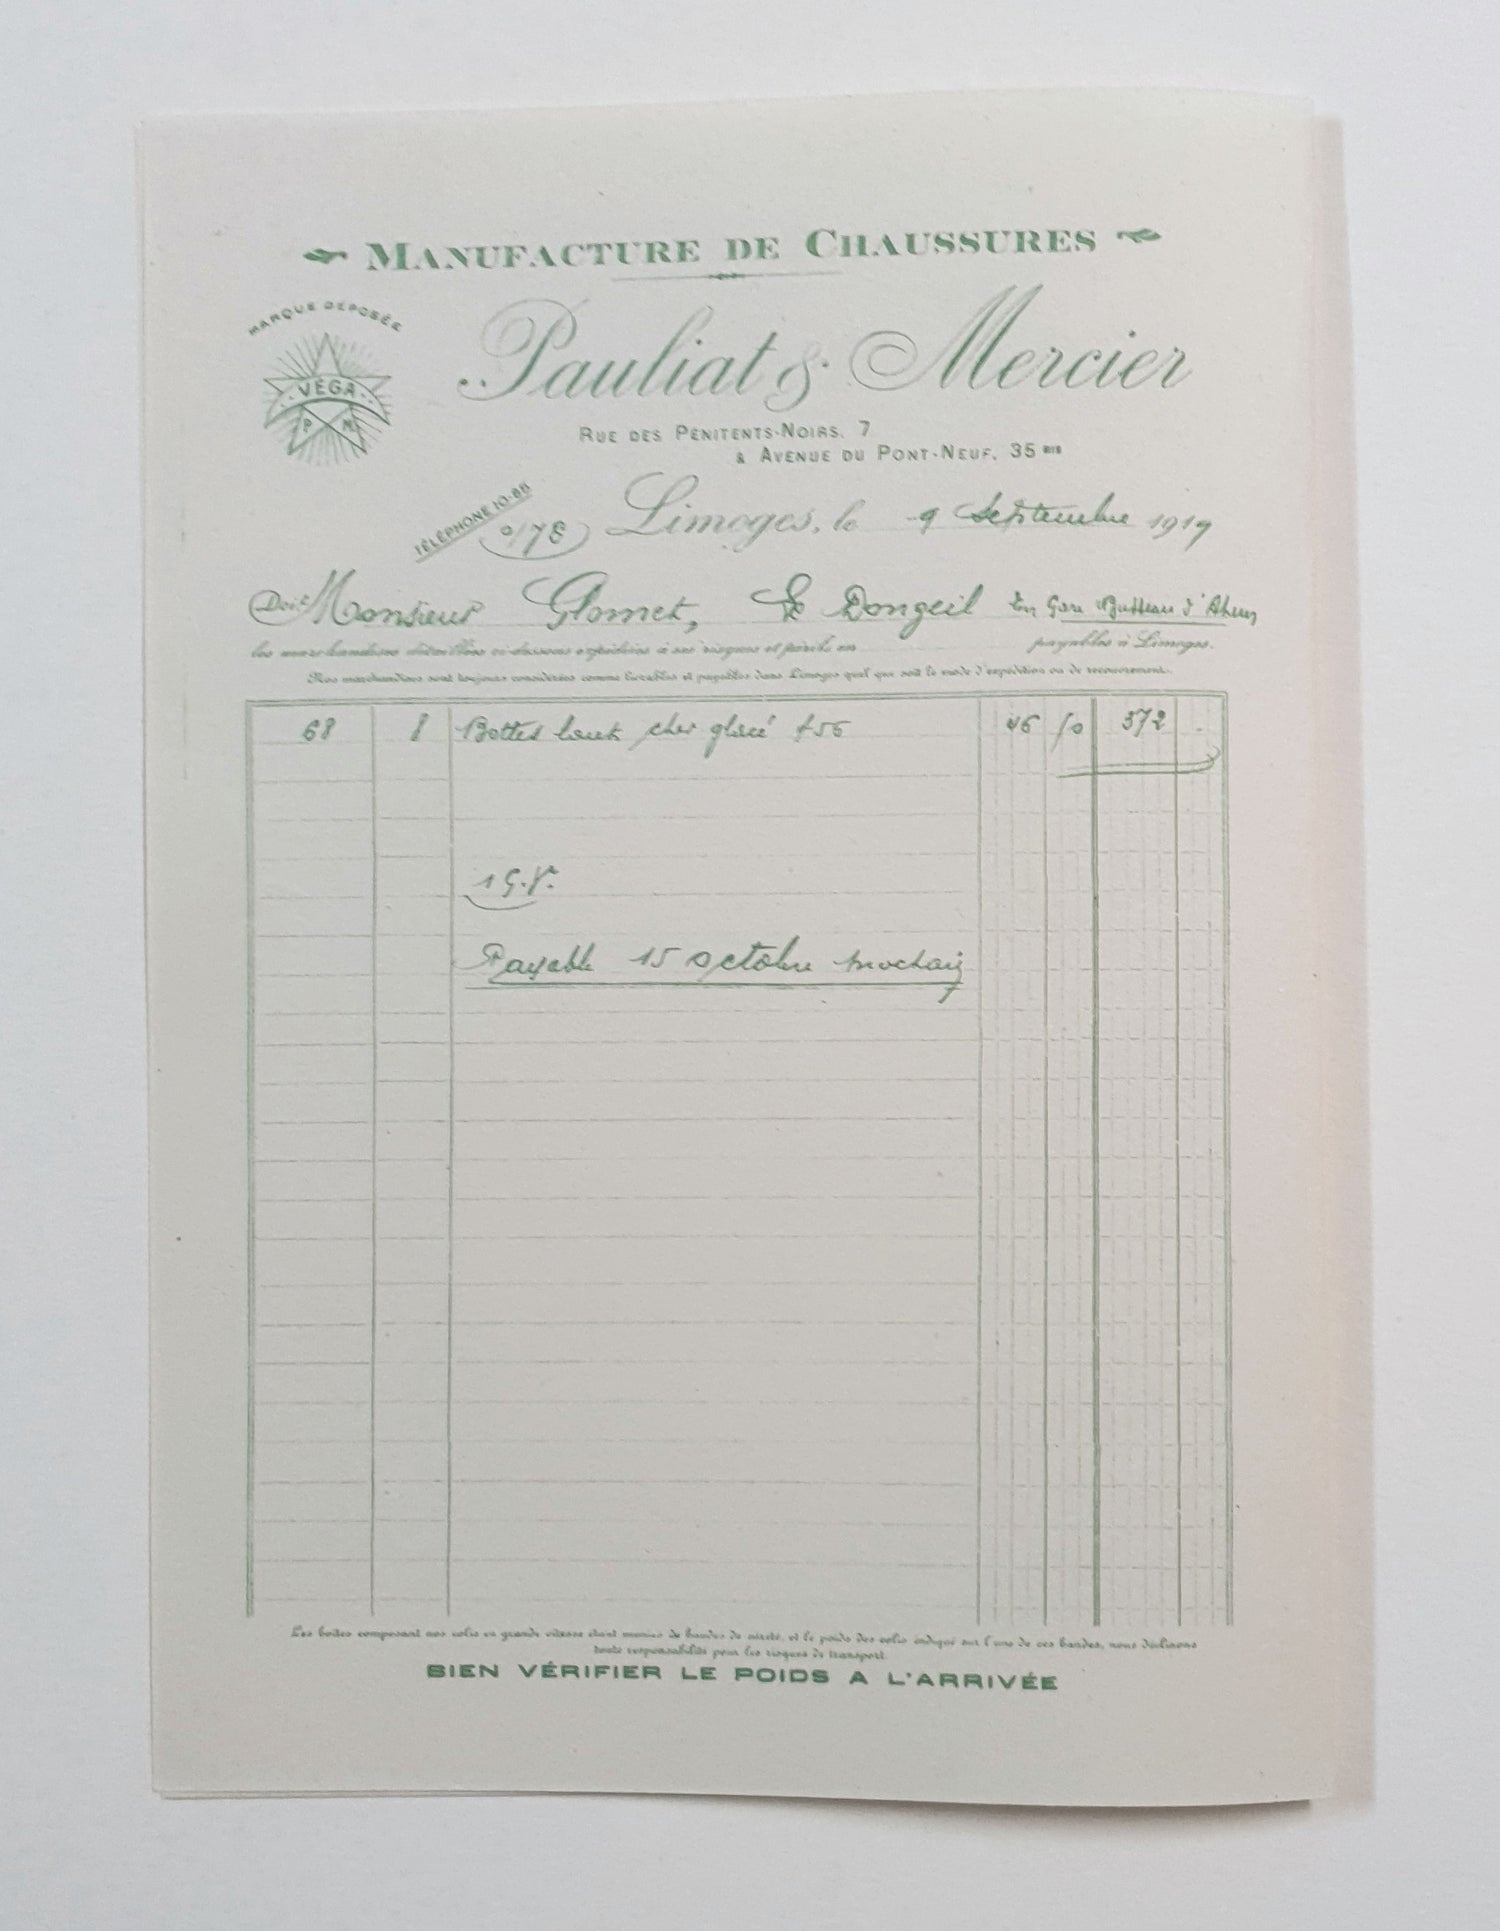 MANUFACTURE DE CHAUSSURES
MARQUE DÉPOSÉE
VÉGA
P M
Pauliat & Mercier
RUE DES PÉNITENTS-NOIRS, 7
& AVENUE DU PONT-NEUF, 35 BIS
TÉLÉPHONE 10-85
Limoges, le 9 Septembre 1919
Doit Monsieur Glomet, Le Dongeil En Gare Busseau d'Ahun
les marchandises détaillées ci-dessous expédiées à ses risques et périls en payables à Limoges.
Nos marchandises sont toujours considérées comme livrables et payables dans Limoges quel que soit le mode d'expédition ou de recouvrement.
68 8 Bottes haut chev glacé 46 50 372
1 G.V.
Payable 15 octobre prochain
Les boîtes composant nos colis en grande vitesse étant munies de bandes de sûreté, et le poids des colis indiqué sur l'une de ces bandes, nous déclinons
toute responsabilité pour les risques de transport.
BIEN VÉRIFIER LE POIDS A L'ARRIVÉE